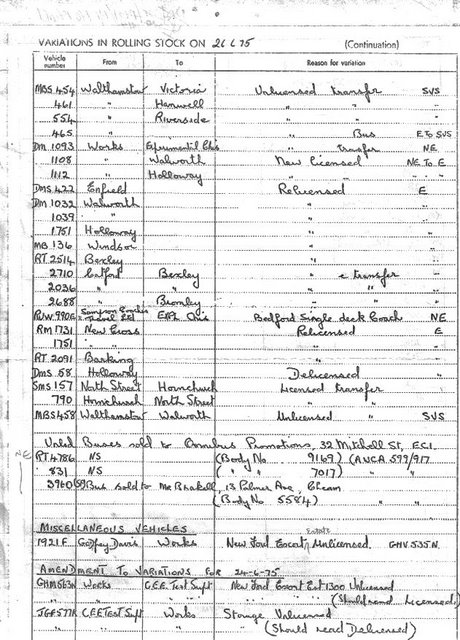 VARIATIONS IN ROLLING STOCK ON 26 6 75 (Continuation)
Vehicle number From To Reason for variation
MBS 454 Walthamstow Victoria Unlicensed transfer SVS
461 " Hanwell " " "
554 " Riverside " " "
465 " " Bus E To SVS
DM 1093 Works Experimental Chis transfer NE
1108 " Walworth New licensed NE To E
1112 " Holloway " " " " "
DMS 422 Enfield Relicensed E
DM 1032 Walworth " "
1039 " " "
1751 Holloway " "
MB 136 Windsor " "
RT 2514 Bexley " "
2710 Catford Bexley " e transfer "
2036 " " " " "
2688 " Bromley " "
Bedford Single deck Coach NE
RM 1731 New Cross Relicensed E
1751 " " "
RT 2091 Barking " "
DMS 58 Holloway Delicensed "
SMS 157 North Street Hornchurch Licensed transfer "
790 Hornchurch North Street " " "
MBS 458 Walthamstow Walworth Unlicensed " SVS
Unlcd Buses sold to Omnibus Promotions, 32 Mitchell St, EC1.
NE RT 4786 NS (Body No 9169) (AVCA 599/917
" 831 NS ( " " 7017) " "
3960 (S9) Bus sold to Mr Brakell, 13 Palmer Ave, Cheam
(Body No 5584)
MISCELLANEOUS VEHICLES
1921F Godfrey Davis Works New Ford Escort Estate Unlicensed. GHV 535N.
AMENDMENT TO VARIATIONS FOR 24-6-75
GHM 563N Works C.E.E. Test Supt New Ford Escort Est 1300 Unlicensed
(Should read Licensed)
JGF 577K C.E.E Test Supt Works Storage Unlicensed
" " " " (Should read Delicensed)